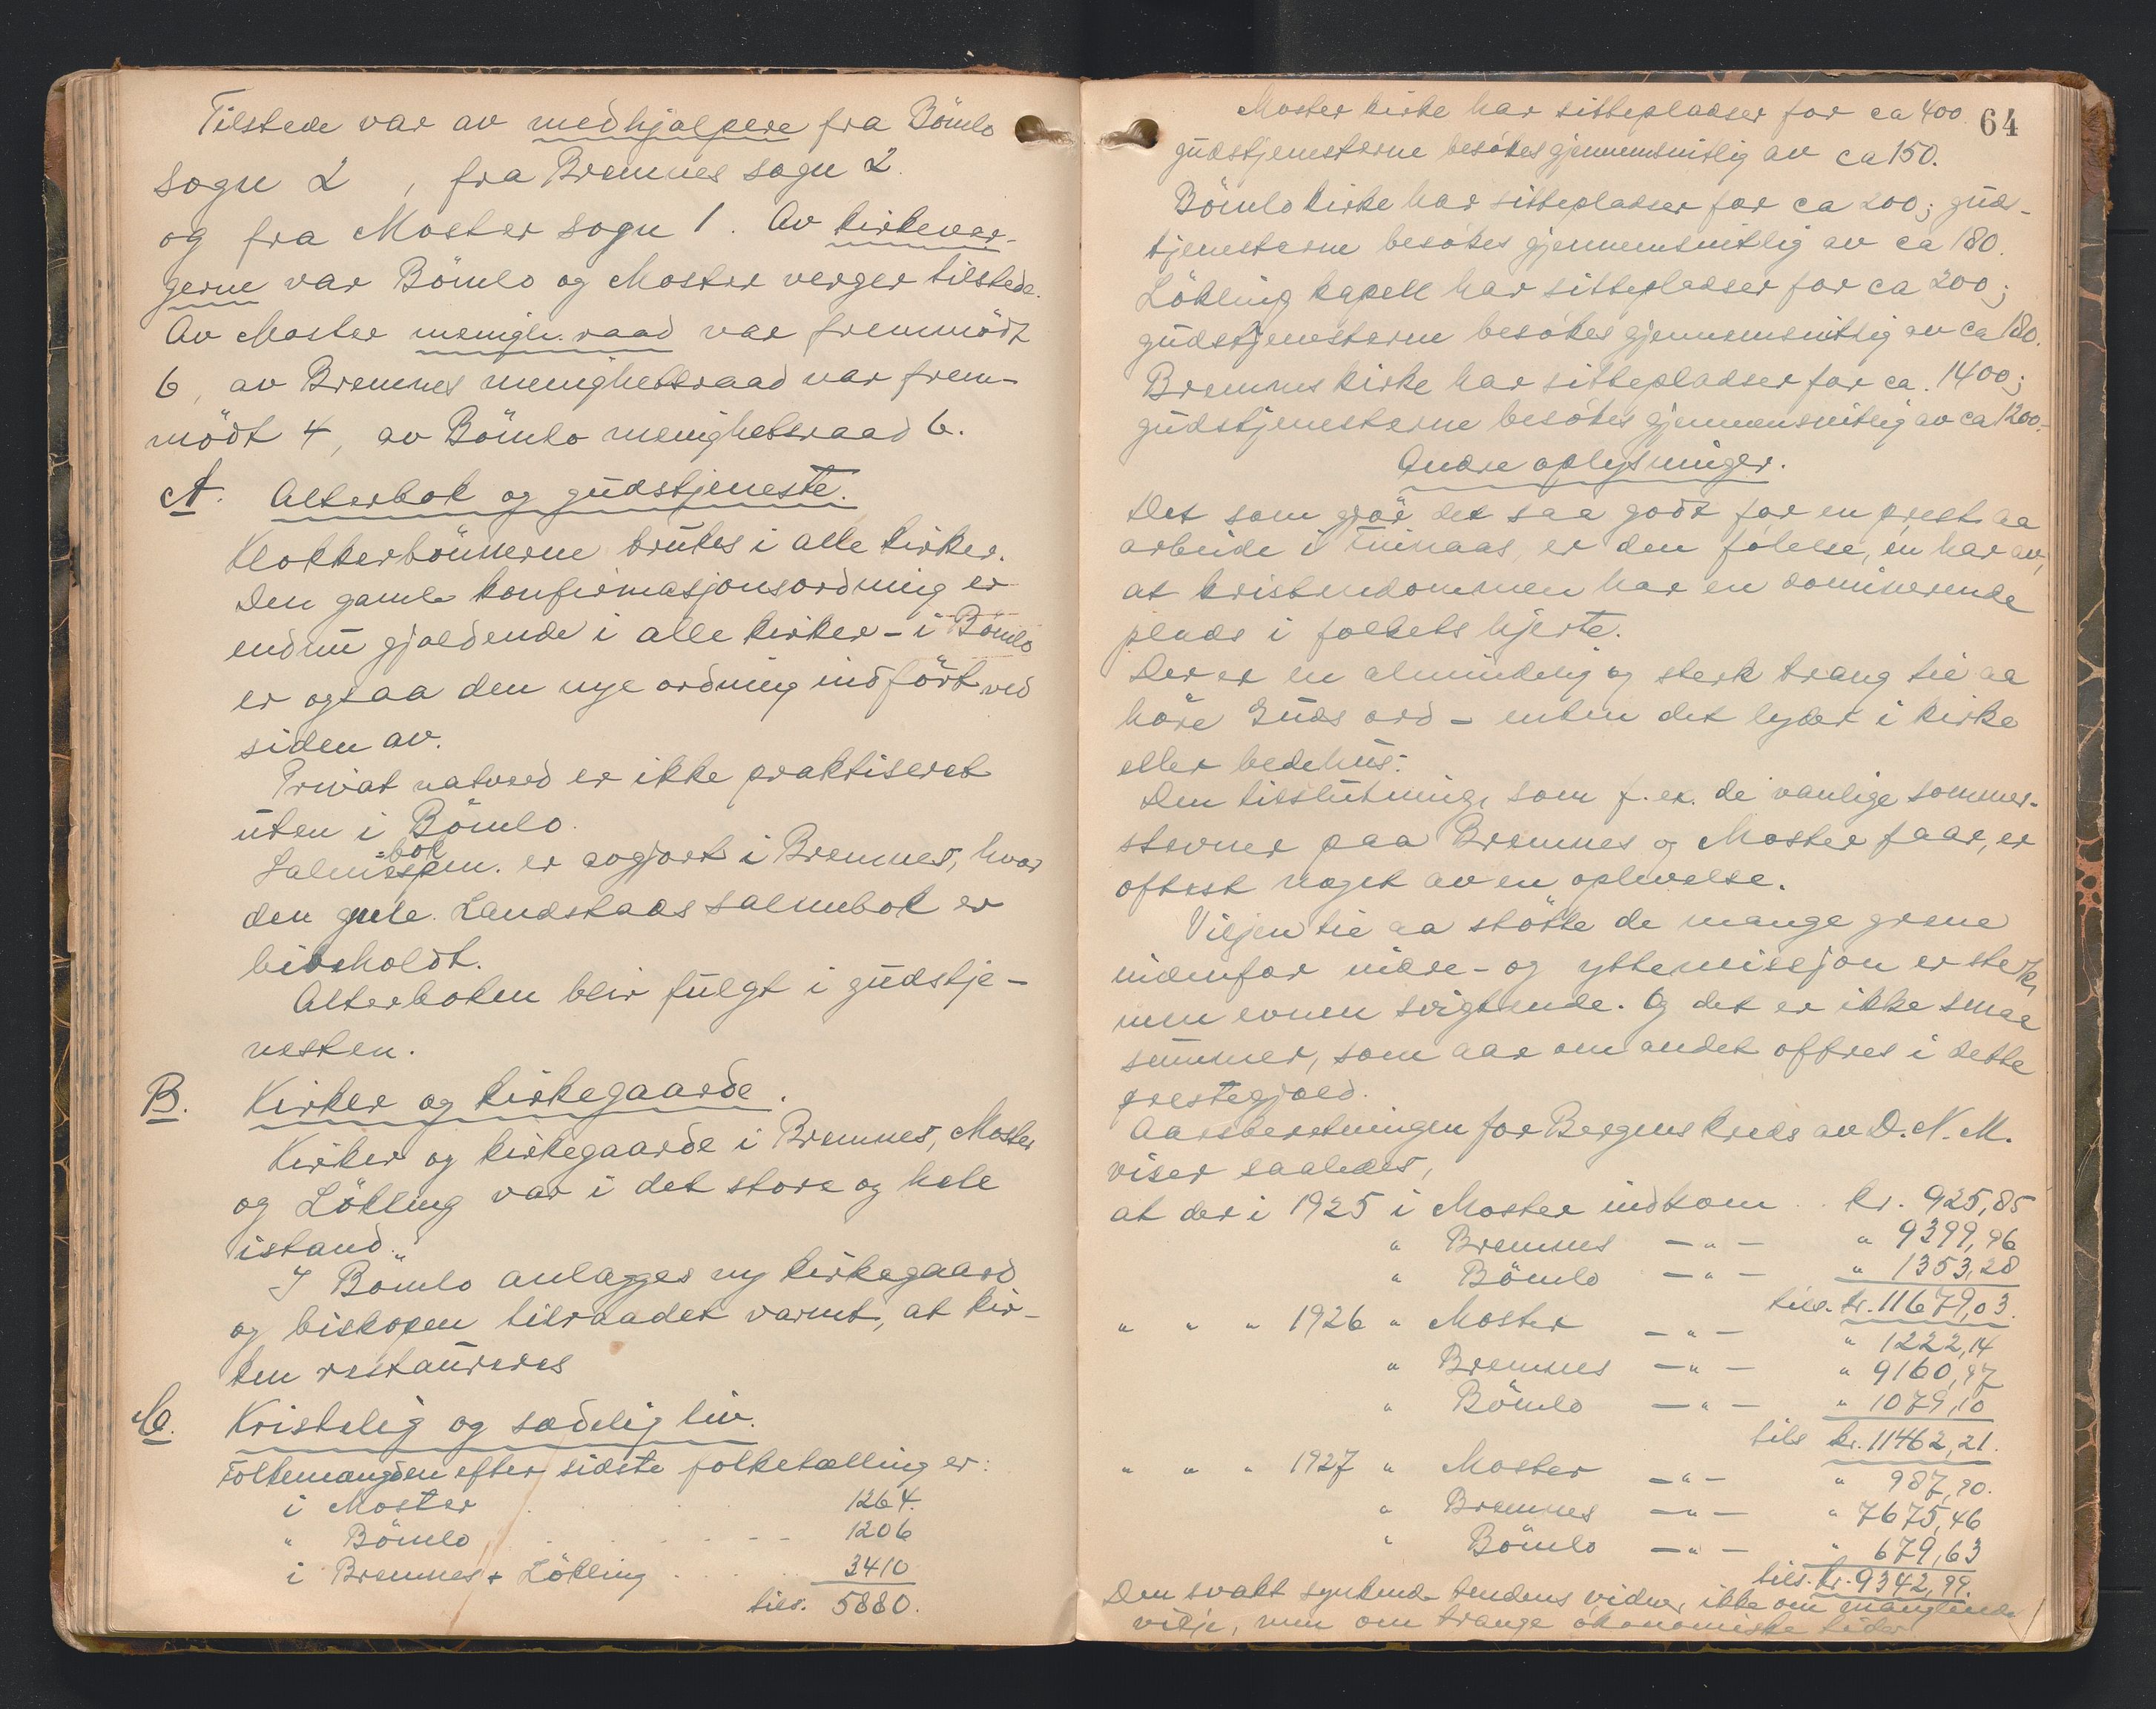 Tilstede var av medhjælpere fra Bömlo
sogn 2, fra Bremnes sogn 2.
og fra Moster sogn 1. Av kirkever-
gerne var Bömlo og Moster verger tilstede.
Av Moster menigh. raad var fremmödt
6, av Bremnes menighetsraad var frem-
mödt 4, av Bömlo menighetsraad 6.
A. Alterbok og gudstjeneste.
Klokkerbönnerne brukes i alle kirker.
Den gamle konfirmasjonsordning er
endnu gjældende i alle kirker - i Bömlo
er ogsaa den nye ordning indfört ved
siden av.
Privat natverd er ikke praktiseret
uten i Bömlo.
Salmebokspm. er avgjort i Bremnes, hvor
den gule. Landstads salmebok er
bibeholdt.
Alterboken blir fulgt i gudstje-
nesten.
B. Kirker og kirkegaarde.
Kirker og kirkegaarde i Bremnes, Moster
og Lökling var i det store og hele
istand.
I Bömlo anlægges ny kirkegaard
og biskopen tilraadet varmt, at kir-
ken restaureres
C. Kristelig og sædelig liv.
Folkemængden efter sidste folketælling er:
i Moster . . . . 1264.
" Bömlo . . . . 1206
i Bremnes + Lökling . . . . 3410
tils. 5880.
64
Moster kirke har sittepladser for ca 400
gudstjenesterne besökes gjennemsnitlig av ca 150.
Bömlo kirke har sittepladser for ca 200; guds-
tjenesterne besökes gjennemsnitlig av ca 180.
Lökling kapell har sittepladser for ca 200;
gudstjenesterne besökes gjennemsnitlig av ca 180.
Bremnes kirke har sittepladser for ca. 1400;
gudstjenesterne besökes gjennemsnitlig av ca 1200.
Andre oplysninger.
Det som gjör det saa godt for en prest aa
arbeide i Finnaas, er den fölelse, en har av,
at kristendommen har en dominerende
plads i folkets hjerte.
Der er en almindelig og sterk trang til aa
höre Guds ord - enten det lyder i kirke
eller bedehus.
Den tilslutning, som f. ex. de vanlige sommer-
stevner paa Bremnes og Moster faar, er
oftest noget av en oplevelse.
Viljen til aa stötte de mange grene
indenfor indre- og yttermissjon er sterk,
men evnen svigtende. Og det er ikke smaa
summer, som aar om andet offres i dette
prestegjæld.
Aarsberetningen for Bergens kreds av D. N. M.
viser saaledes,
at der i 1925 i Moster indkom . . kr. 925,85
" Bremnes — " — " 9399,96
" Bömlo — " — " 1353,20
tils. kr. 11679,03.
" " " 1926 " Moster — " — " 1222,14
" Bremnes — " — " 9160,97
" Bömlo — " — " 1079,10
tils kr. 11462,21.
" " " 1927 " Moster — " — " 987,90.
" Bremnes — " — " 7675,46
" Bömlo — " — " 679,63
tils. kr. 9342,99.
Den svakt synkende tendens vidner ikke om manglende
vilje, men om trange ökonomiske tider.